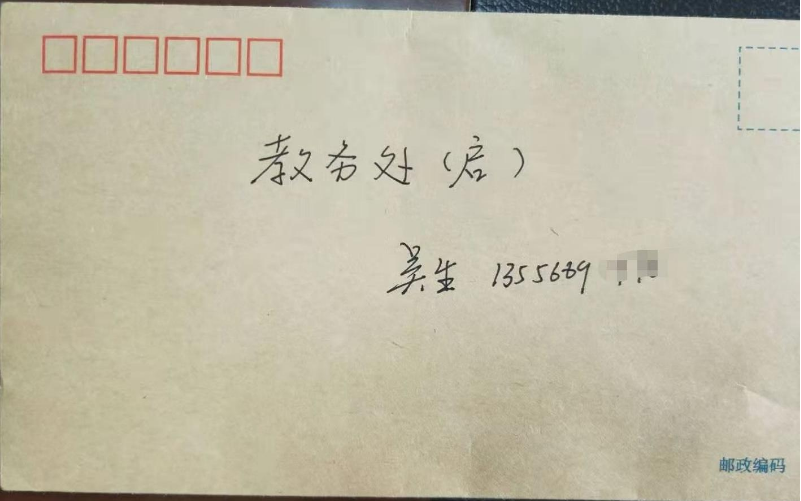 教务处（启）
吴生 1355689
邮政编码